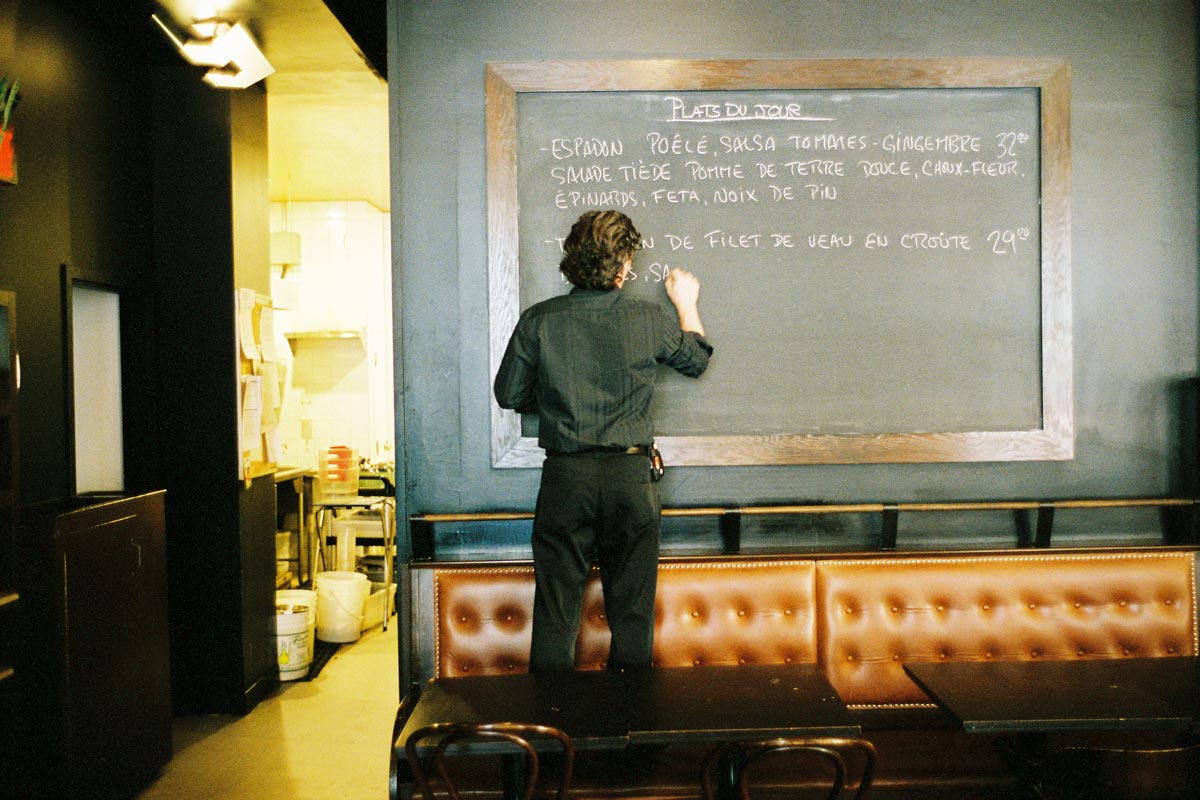 PLATS DU JOUR
-ESPADON POÊLÉ, SALSA TOMATES-GINGEMBRE 32⁰⁰
SALADE TIÈDE POMME DE TERRE DOUCE, CHOUX-FLEUR,
ÉPINARDS, FETA, NOIX DE PIN
- DE FILET DE VEAU EN CROÛTE 29⁰⁰
, SA